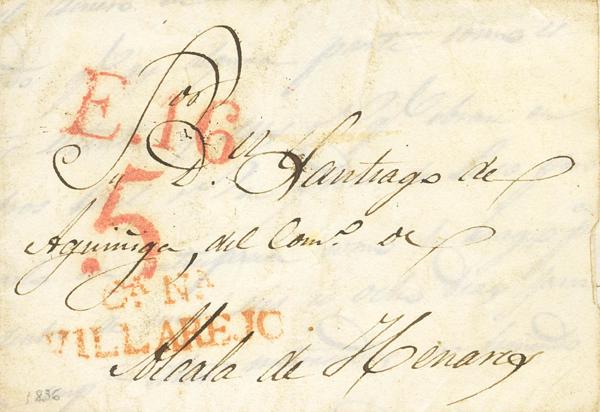 E.16
S.ʳ D.ⁿ Santiago de
5
Aguiñiga, del Com.º de
C.ᴬ N.ᴬ
VILLAREJO
Alcala de Henares
1836